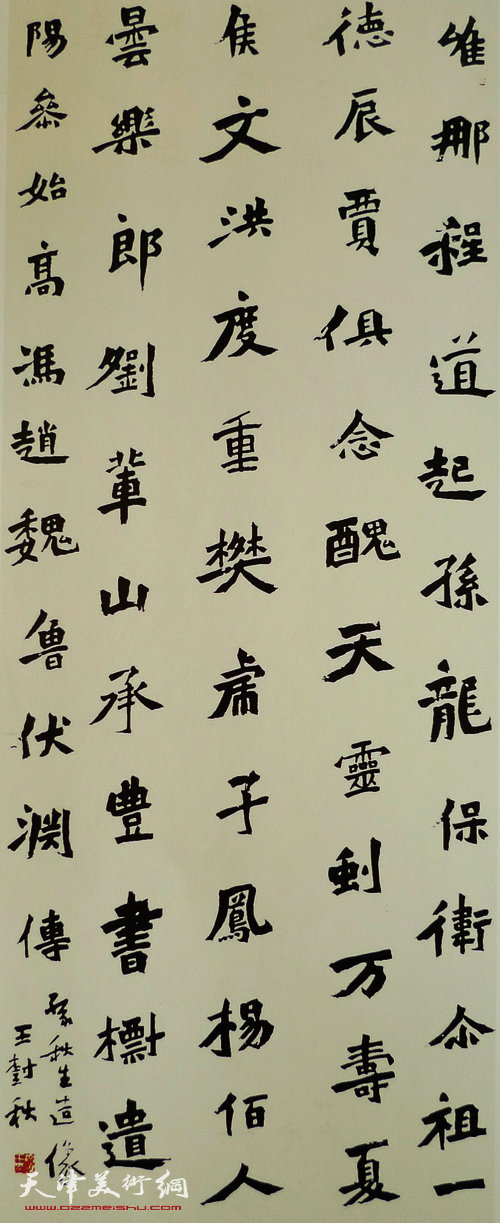 維那程道起孫龍保衛尒祖一
德辰賈俱念醜天靈剉万壽夏
侯文洪度重樊虎子鳳楊佰人
曇樂郎劉輩山承豐書檦遺
陽叅始高馮趙魏魯伏渊傳
孫秋生造像
王樹秋
天津美術網
www.ozzmeishu.com